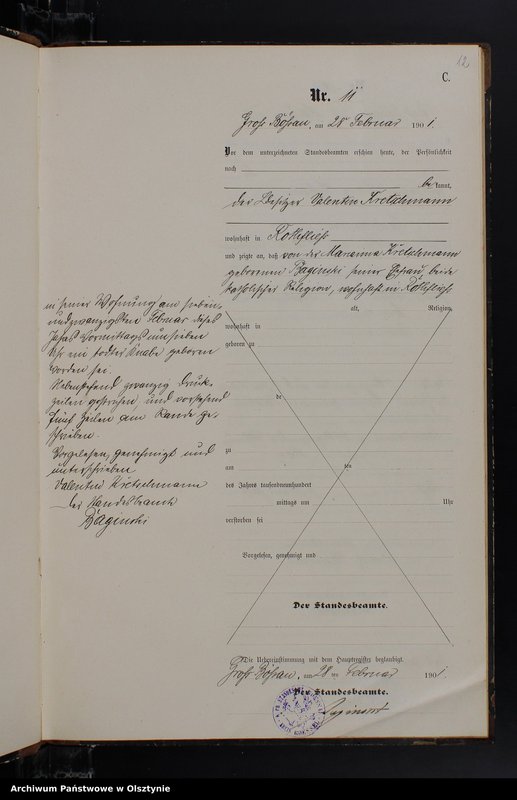 12
C.
Nr. 11
Groß Bößau, am 28 Februar 1901.
Vor dem unterzeichneten Standesbeamten erschien heute, der Persönlichkeit
nach
bekannt,
der Besitzer Valentin Kretschmann
wohnhaft in Rothfließ
und zeigte an, daß von der Marianna Kretschmann
geborenen Baginski seiner Ehefrau, beide
katholischer Religion, wohnhaft in Rothfließ
alt, Religion,
wohnhaft in
geboren zu
de
zu
am ten
des Jahres tausendneunhundert
mittags um Uhr
verstorben sei
Vorgelesen, genehmigt und
Der Standesbeamte.
in seiner Wohnung am sieben
undzwanzigsten Februar dieses
Jahres Vormittags um sieben
Uhr ein todter Knabe geboren
worden sei.
Nebenstehend zwanzig Druck-
zeilen gestrichen, und vorstehend
fünf Zeilen am Rande ge-
schrieben.
Vorgelesen, genehmigt und
unterschrieben
Valentin Kretschmann
Der Standesbeamte
Baginski
Die Uebereinstimmung mit dem Hauptregister beglaubigt.
Groß Bößau, am 28 ten Februar 1901.
Der Standesbeamte.
Baginski
Archiwum Państwowe w Olsztynie